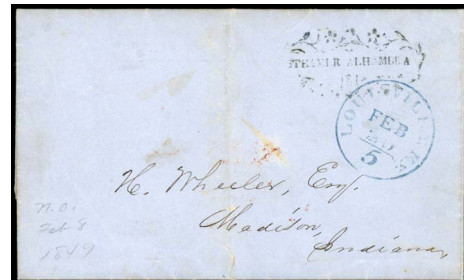 STEAMER ALHAMBRA
LOUISVILLE KY.
FEB
5
H. Wheeler, Esq.
Madison,
Indiana,
N.O.
Feb 8
1849